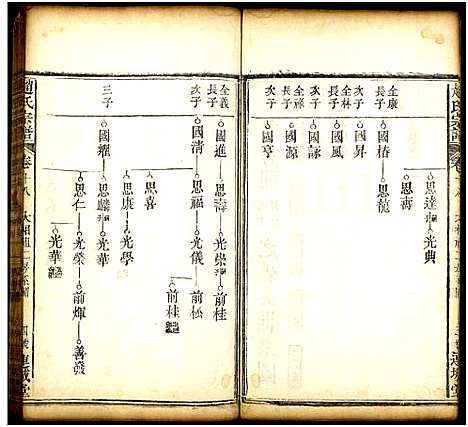 趙氏宗譜
全康
長子
國椿
思達
光典
思壽
思龍
全林
長子
國風
次子
國昇
全祿
長子
國詠
次子
國亨
全義
長子
國進
思壽
光崇
前桂
次子
國清
思福
光儀
前松
前桂
三子
國耀
思喜
思康
光學
思麟
光華
思仁
光榮
前輝
善發
光華
趙氏宗譜
卷十八
連城堂